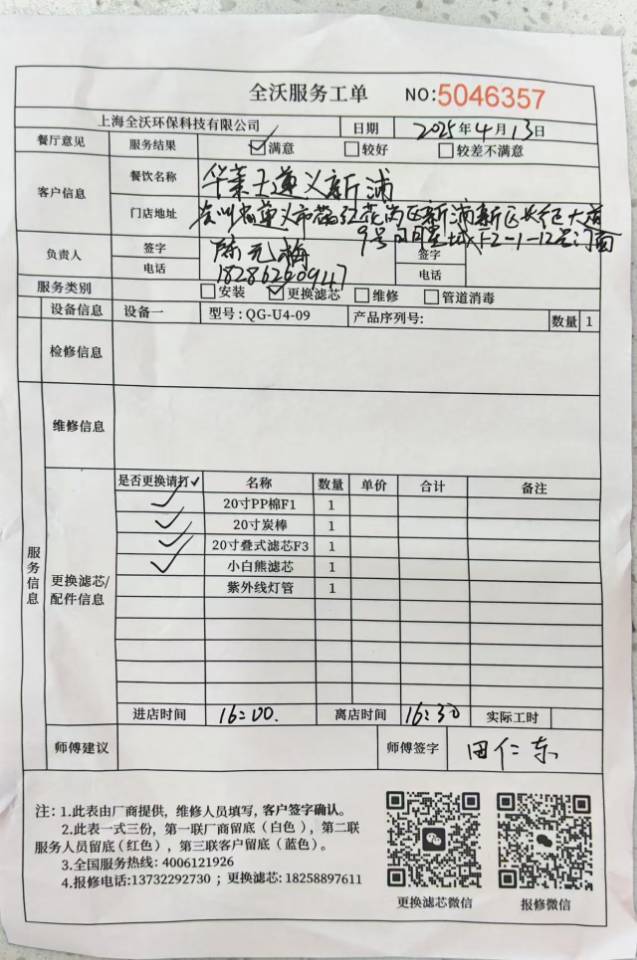 全沃服务工单 NO:5046357
上海全沃环保科技有限公司 日期 2025年4月13日
餐厅意见 服务结果 ☑满意 □较好 □较差不满意
客户信息 餐饮名称 华莱士遵义新浦
门店地址 贵州省遵义市 红花岗区新浦新区长征大道
9号 F2-1-12号门面
负责人 签字 陈元梅 签字
电话 182862609147 电话
服务类别 □安装 ☑更换滤芯 □维修 □管道消毒
设备信息 设备一 型号:QG-U4-09 产品序列号: 数量 1
检修信息
维修信息
服务信息
更换滤芯/配件信息
是否更换请打✓ 名称 数量 单价 合计 备注
✓ 20寸PP棉F1 1
✓ 20寸炭棒 1
✓ 20寸叠式滤芯F3 1
✓ 小白熊滤芯 1
紫外线灯管 1
进店时间 16:00. 离店时间 16:30 实际工时
师傅建议 师傅签字 田仁东
注:1.此表由厂商提供，维修人员填写,客户签字确认。
2.此表一式三份，第一联厂商留底(白色)，第二联
服务人员留底(红色)，第三联客户留底(蓝色)。
3.全国服务热线: 4006121926
4.报修电话:13732292730 ; 更换滤芯: 18258897611
更换滤芯微信 报修微信